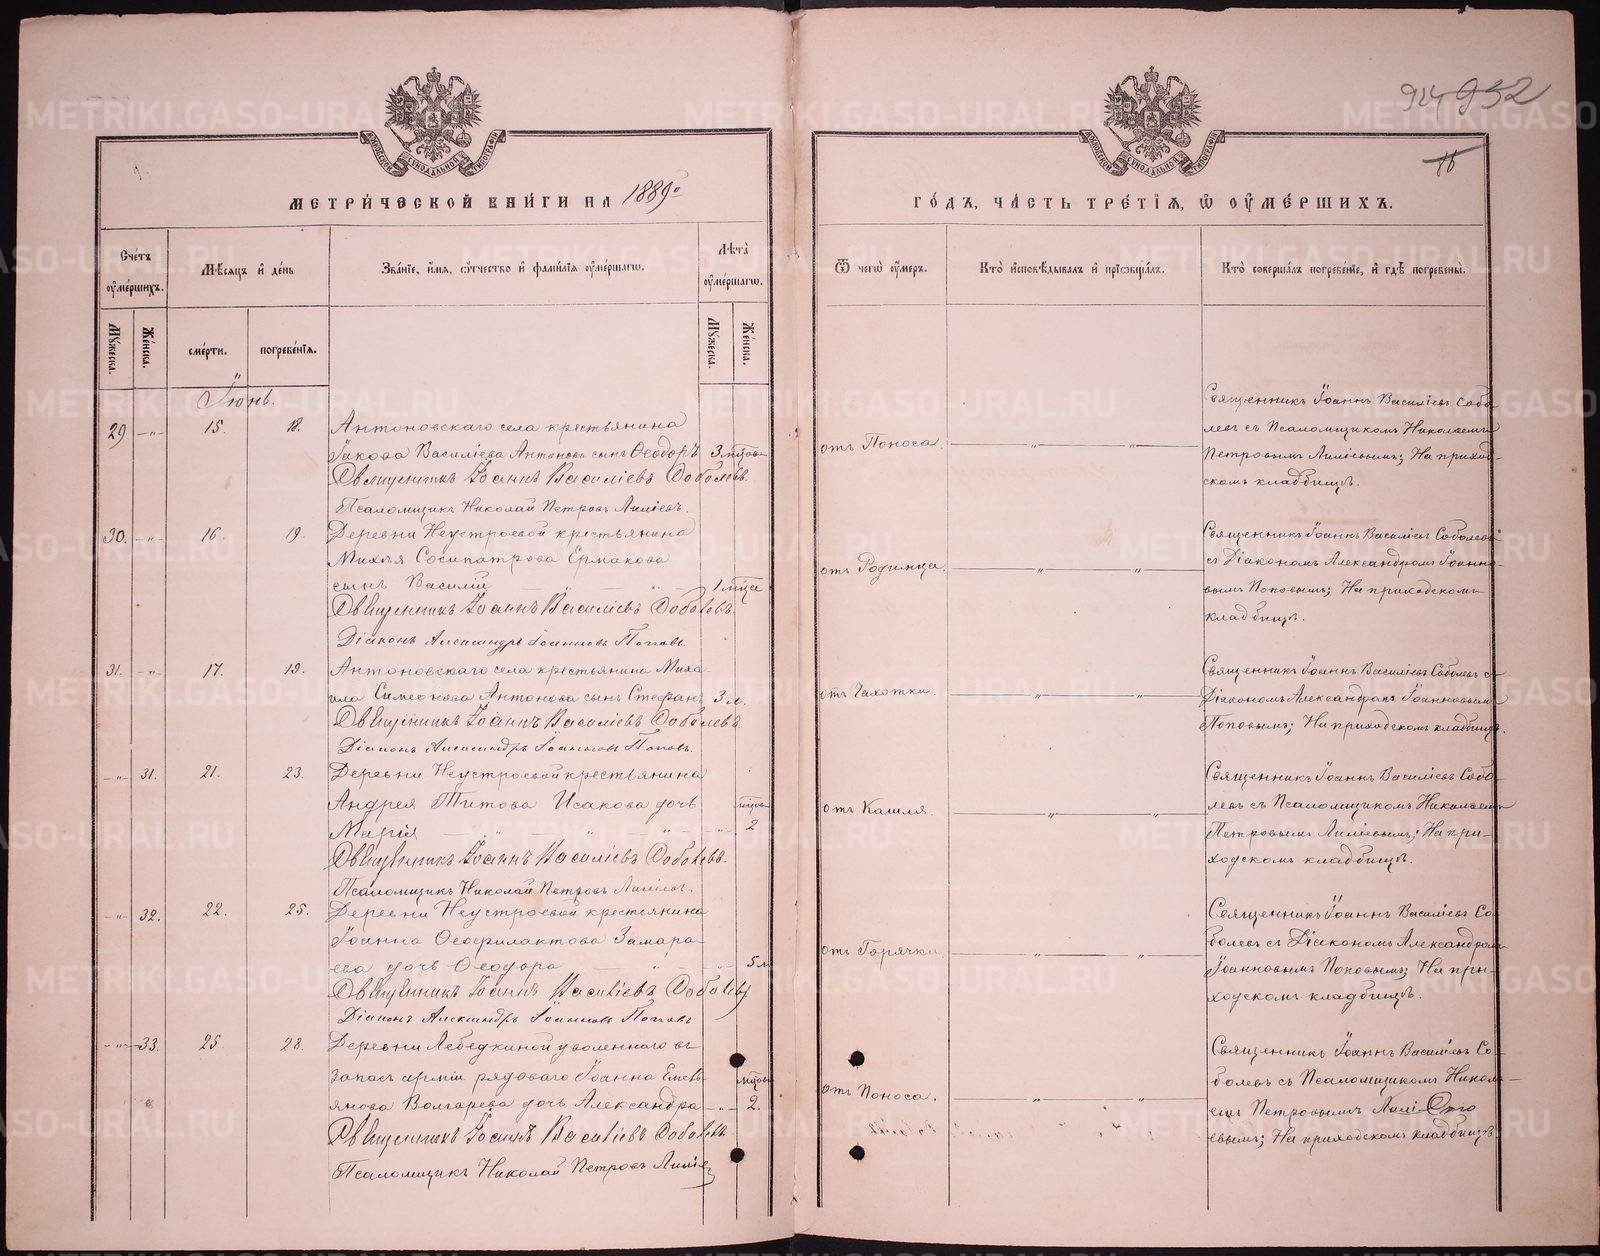 924 932
16
МЕТРИЧЕСКОЙ КНИГИ НА 1889й
ГОДЪ, ЧАСТЬ ТРЕТІЯ, Ѡ ОУМЕРШИХЪ.
Счетъ оумершихъ.
Мѣсяцъ и день
Званіе, имя, отчество и фамилія оумершагѡ.
Лѣта оумершагѡ.
Ѿ чегѡ оумеръ.
Кто исповѣдывалъ и пріобщалъ.
Кто совершалъ погребеніе, и гдѣ погребены.
Мужеска.
Женска.
смерти.
погребенія.
Мужеска.
Женска.
Іюнь.
29 — 15. 18.
Антоновскаго села крестьянина
Іакова Василіева Антонова сынъ Ѳеодоръ 3 мѣсяц
Священникъ Іоаннъ Василіевъ Соболевъ.
Псаломщикъ Николай Петровъ Лиліевъ.
отъ Поноса
Священникъ Іоаннъ Василіевъ Собо-
левъ съ Псаломщикомъ Николаемъ
Петровымъ Лиліевымъ; На приход-
скомъ кладбищѣ.
30. — 16. 19.
Деревни Неустроевой крестьянина
Михѣя Сосипатрова Ермакова
сынъ Василій 1 мѣсяца
Священникъ Іоаннъ Василіевъ Соболевъ.
Діаконъ Александръ Іоанновъ Поповъ.
отъ Родимца.
Священникъ Іоаннъ Василіевъ Соболевъ
съ Діакономъ Александромъ Іоанно-
вымъ Поповымъ; На приходскомъ
кладбищѣ.
31. — 17. 19.
Антоновскаго села крестьянина Миха-
ила Симеонова Антонова сынъ Стефанъ 3 м.
Священникъ Іоаннъ Василіевъ Соболевъ
Діаконъ Александръ Іоанновъ Поповъ.
отъ Чахотки.
Священникъ Іоаннъ Василіевъ Соболевъ съ
Діакономъ Александромъ Іоанновымъ
Поповымъ; На приходскомъ кладбищѣ.
— 31. 21. 23.
Деревни Неустроевой крестьянина
Андрея Титова Исакова дочь
Марія 2
Священникъ Іоаннъ Василіевъ Соболевъ.
Псаломщикъ Николай Петровъ Лиліевъ.
отъ Кашля.
Священникъ Іоаннъ Василіевъ Собо-
левъ съ Псаломщикомъ Николаемъ
Петровымъ Лиліевымъ; На при-
ходскомъ кладбищѣ.
— 32. 22. 25.
Деревни Неустроевой крестьянина
Іоанна Ѳеофилактова Замара-
ева дочь Ѳеодора 5 м
Священникъ Іоаннъ Василіевъ Соболевъ
Діаконъ Александръ Іоанновъ Поповъ
отъ Горячки
Священникъ Іоаннъ Василіевъ Со-
болевъ съ Діакономъ Александромъ
Іоанновымъ Поповымъ; На при-
ходскомъ кладбищѣ.
— 33. 25. 28.
Деревни Лебедкиной уволеннаго въ
запасъ арміи рядоваго Іоанна Емель-
янова Волгарева дочь Александра 2.
Священникъ Іоаннъ Василіевъ Соболевъ
Псаломщикъ Николай Петровъ Лиліевъ
отъ Поноса.
Священникъ Іоаннъ Василіевъ Со-
болевъ съ Псаломщикомъ Никола-
емъ Петровымъ Лилі-
евымъ; На приходскомъ кладбищѣ.
METRIKI.GASO-URAL.RU